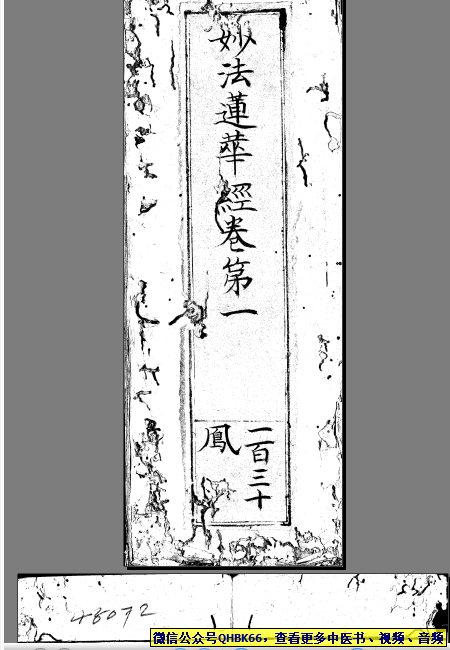 妙法蓮華經卷第一
二百三十
鳳
48072
微信公众号QHBK66，查看更多中医书、视频、音频